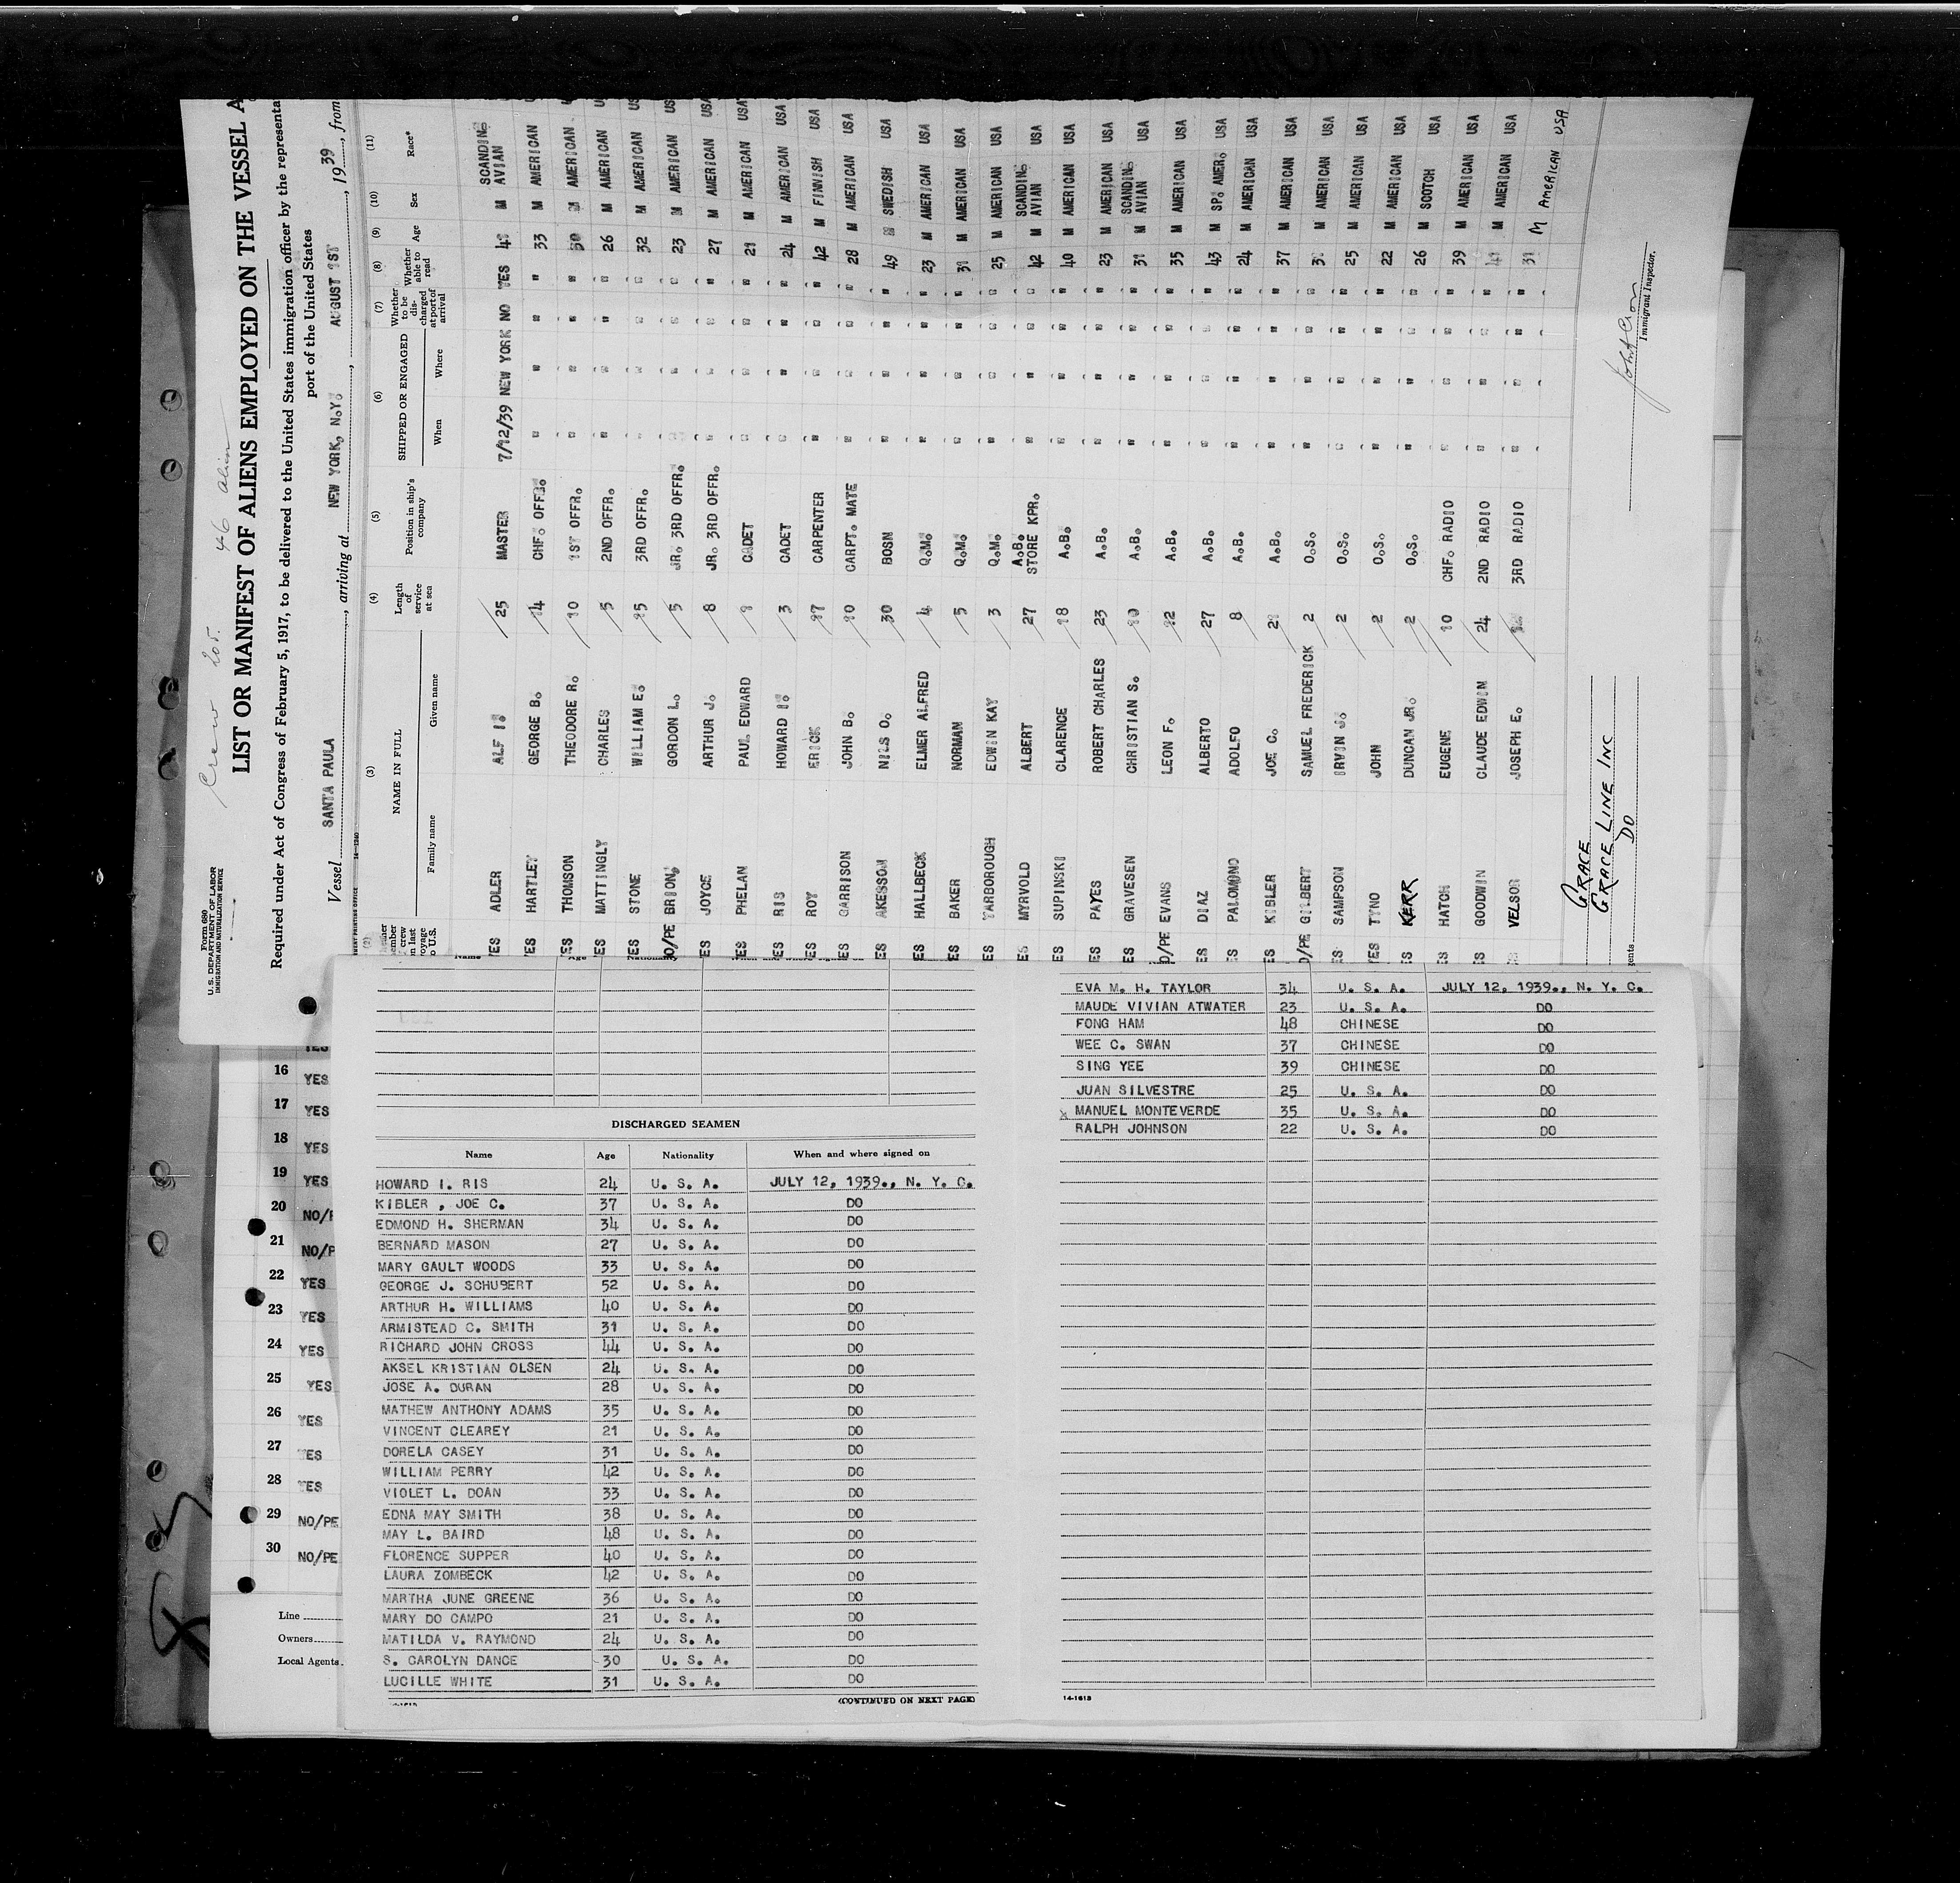 Crew 205. 46 alien
Form 680
U. S. DEPARTMENT OF LABOR
IMMIGRATION AND NATURALIZATION SERVICE
LIST OR MANIFEST OF ALIENS EMPLOYED ON THE VESSEL A
Required under Act of Congress of February 5, 1917, to be delivered to the United States immigration officer by the representa
port of the United States
Vessel SANTA PAULA, arriving at NEW YORK, N.Y., AUGUST 1ST, 1939, from
(2) (3) (4) (5) (6) (7) (8) (9) (10) (11)
NAME IN FULL Length of service at sea Position in ship's company SHIPPED OR ENGAGED Whether to be discharged at port of arrival Whether able to read Age Sex Race*
Family name Given name When Where
ES ADLER ALF I. 25 MASTER 7/12/39 NEW YORK NO YES M SCANDIN AVIAN
ES HARTLEY GEORGE B. 14 CHF. OFFR. " " " " 33 M AMERICAN USA
ES THOMSON THEODORE R. 10 1ST OFFR. " " " " 30 M AMERICAN
ES MATTINGLY CHARLES 5 2ND OFFR. " " " " 26 M AMERICAN
ES STONE WILLIAM E. 15 3RD OFFR. " " " " 32 M AMERICAN
O/PE BRION, GORDON L. 5 JR. 3RD OFFR. " " " " 23 M AMERICAN
ES JOYCE ARTHUR J. 8 JR. 3RD OFFR. " " " " 27 M AMERICAN USA
ES PHELAN PAUL EDWARD CADET " " " " 21 M AMERICAN USA
ES RIS HOWARD I. 3 CADET " " " " 24 M AMERICAN USA
ES ROY ERICK 17 CARPENTER " " " " 42 M FINNISH USA
ES GARRISON JOHN B. 10 CARPT. MATE " " " " 28 M AMERICAN USA
ES AKESSON NILS O. 30 BOSN " " " " 49 M SWEDISH USA
ES HALLBECK ELMER ALFRED 4 Q.M. " " " " 23 M AMERICAN USA
ES BAKER NORMAN 5 Q.M. " " " " 31 M AMERICAN USA
ES YARBOROUGH EDWIN KAY 3 Q.M. " " " " 25 M AMERICAN USA
ES MYRVOLD ALBERT 27 A.B. STORE KPR. " " " " 42 M SCANDIN AVIAN USA
ES SUPINSKI CLARENCE 18 A.B. " " " " 40 M AMERICAN USA
ES PAYES ROBERT CHARLES 23 A.B. " " " " 23 M AMERICAN USA
ES GRAVESEN CHRISTIAN S. 10 A.B. " " " " 31 M SCANDIN AVIAN USA
O/PE EVANS LEON F. 12 A.B. " " " " 35 M AMERICAN USA
ES DIAZ ALBERTO 27 A.B. " " " " 43 M SP. AMER. USA
ES PALOMINO ADOLFO 8 A.B. " " " " 24 M AMERICAN USA
ES KIBLER JOE C. 21 A.B. " " " " 37 M AMERICAN USA
O/PE GILBERT SAMUEL FREDERICK 2 O.S. " " " " M AMERICAN USA
ES SAMPSON IRVIN J. 2 O.S. " " " " 25 M AMERICAN USA
YES TYNO JOHN 2 O.S. " " " " 22 M AMERICAN USA
ES KERR DUNCAN JR. 2 O.S. " " " " 26 M SCOTCH USA
ES HATCH EUGENE 10 CHF. RADIO " " " " 39 M AMERICAN USA
ES GOODWIN CLAUDE EDWIN 24 2ND RADIO " " " " M AMERICAN USA
ES VELSOR JOSEPH E. 3RD RADIO " " " " 31 M AMERICAN USA
GRACE
GRACE LINE INC
DO
gents
Immigrant Inspector.
16 YES
17 YES
18 YES
19 YES
20 NO/P
21 NO/P
22 YES
23 YES
24 YES
25 YES
26 YES
27 YES
28 YES
29 NO/PE
30 NO/PE
Line
Owners
Local Agents
DISCHARGED SEAMEN
Name Age Nationality When and where signed on
HOWARD I. RIS 24 U. S. A. JULY 12, 1939., N. Y. C.
KIBLER , JOE C. 37 U. S. A. DO
EDMOND H. SHERMAN 34 U. S. A. DO
BERNARD MASON 27 U. S. A. DO
MARY GAULT WOODS 33 U. S. A. DO
GEORGE J. SCHUBERT 52 U. S. A. DO
ARTHUR H. WILLIAMS 40 U. S. A. DO
ARMISTEAD C. SMITH 31 U. S. A. DO
RICHARD JOHN CROSS 44 U. S. A. DO
AKSEL KRISTIAN OLSEN 24 U. S. A. DO
JOSE A. DURAN 28 U. S. A. DO
MATHEW ANTHONY ADAMS 35 U. S. A. DO
VINCENT CLEAREY 21 U. S. A. DO
DORELA CASEY 31 U. S. A. DO
WILLIAM PERRY 42 U. S. A. DO
VIOLET L. DOAN 33 U. S. A. DO
EDNA MAY SMITH 38 U. S. A. DO
MAY L. BAIRD 48 U. S. A. DO
FLORENCE SUPPER 40 U. S. A. DO
LAURA ZOMBECK 42 U. S. A. DO
MARTHA JUNE GREENE 36 U. S. A. DO
MARY DO CAMPO 21 U. S. A. DO
MATILDA V. RAYMOND 24 U. S. A. DO
S. CAROLYN DANCE 30 U. S. A. DO
LUCILLE WHITE 31 U. S. A. DO
(CONTINUED ON NEXT PAGE)
EVA M. H. TAYLOR 34 U. S. A. JULY 12, 1939., N. Y. C.
MAUDE VIVIAN ATWATER 23 U. S. A. DO
FONG HAM 48 CHINESE DO
WEE C. SWAN 37 CHINESE DO
SING YEE 39 CHINESE DO
JUAN SILVESTRE 25 U. S. A. DO
x MANUEL MONTEVERDE 35 U. S. A. DO
RALPH JOHNSON 22 U. S. A. DO
14-1613